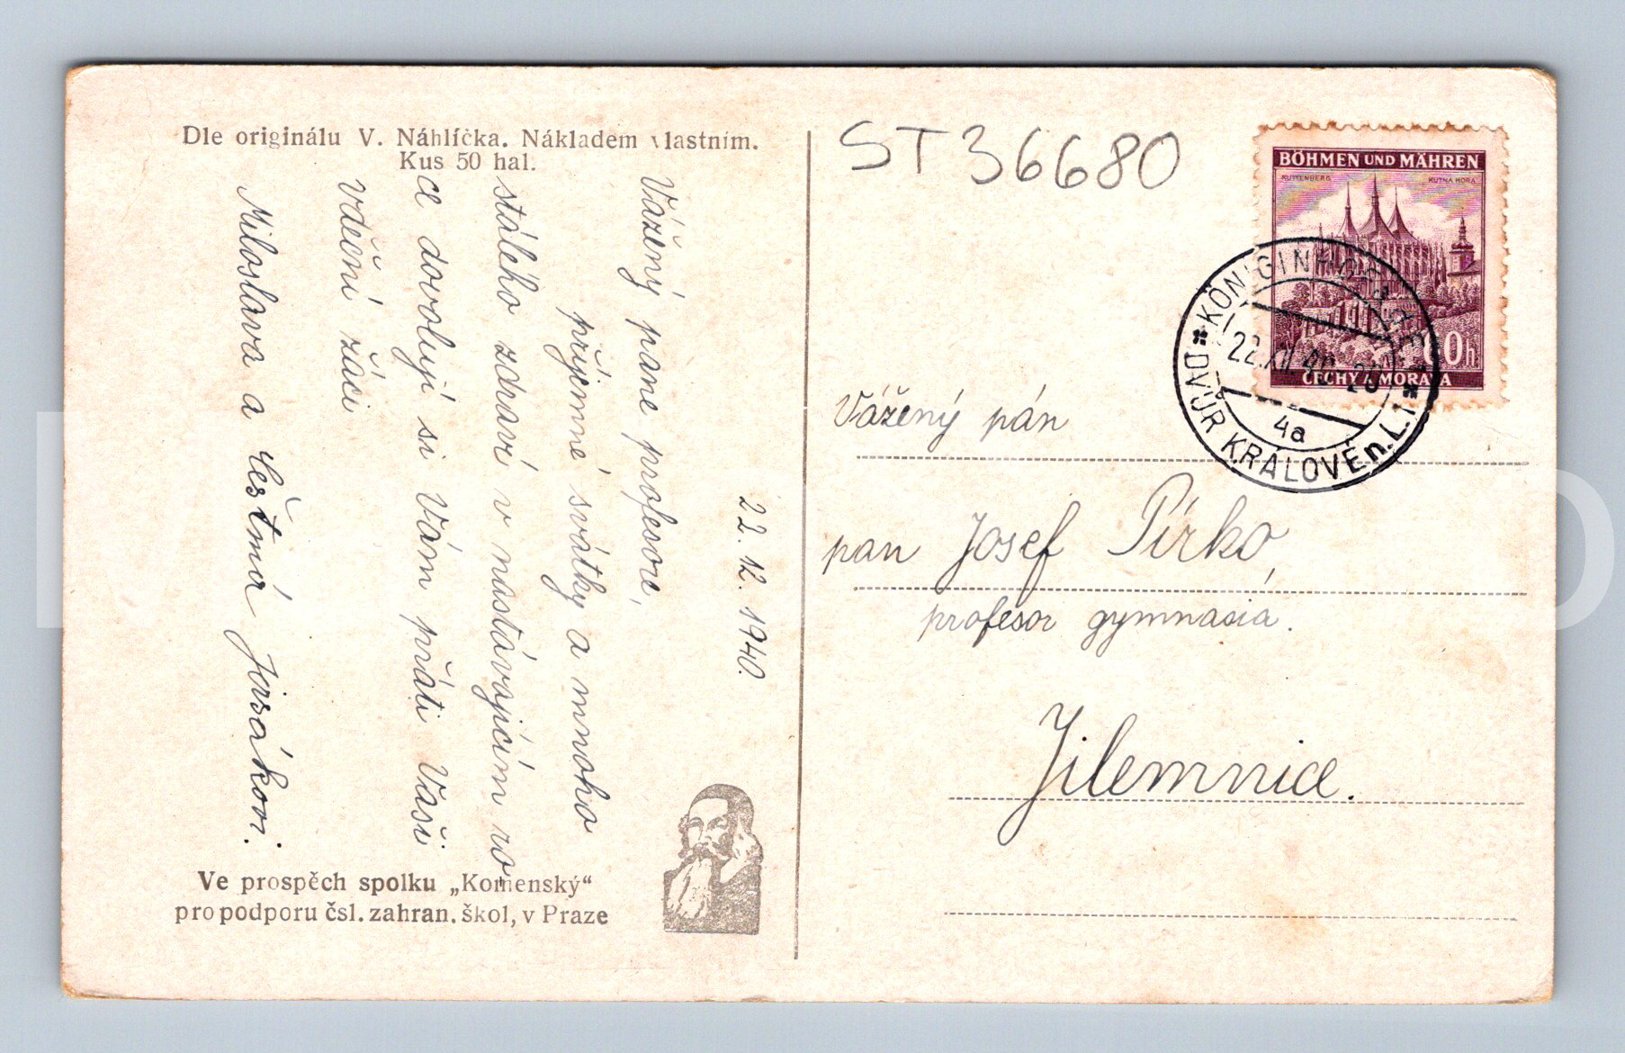 Dle originálu V. Náhlíčka. Nákladem vlastním.
Kus 50 hal.
22. 12. 1940.
Vážený pane profesore,
příjemné svátky a mnoho
stálého zdraví v nastávajícím ro
ce dovolují si Vám přáti Vaši
vděční žáci
Miloslava a Čestmír Jirsákovi.
Ve prospěch spolku „Komenský“
pro podporu čsl. zahran. škol, v Praze
ST 36680
BÖHMEN UND MÄHREN
KUTTENBERG KUTNA HORA
60h
ČECHY A MORAVA
KÖNIGINHOF a.d. E.
22.XII.40
4a
DVŮR KRÁLOVÉ n. L. 1
Vážený pán
pan Josef Pírko,
profesor gymnasia.
Jilemnice.